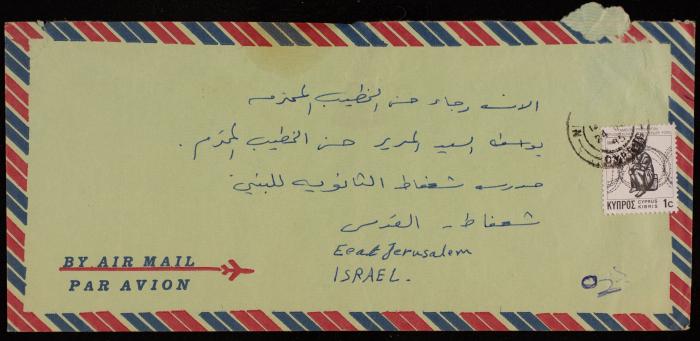 الانسه رجاء حسن الخطيب المحترمه
بواسطة السيد المدير حسن الخطيب المحترم.
مدرسه شعفاط الثانويه للبنين
شعفاط - القدس
Eeat Jerusalem
ISRAEL.
BY AIR MAIL
PAR AVION
ΚΥΠΡΟΣ CYPRUS KIBRIS 1c